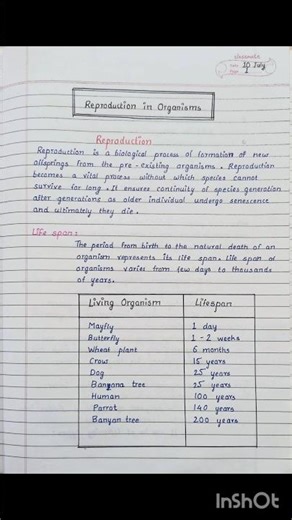 classmate
Date
Page
19 July
Reproduction in Organisms
Reproduction
Reproduction is a biological process of formation of new
offsprings from the pre-existing organisms. Reproduction
becomes a vital process without which species cannot
survive for long. It ensures continuity of species generation
after generations as older individual undergo senescence
and ultimately they die.
Life span:
The period from birth to the natural death of an
organism represents its life span. Life span of
organisms varies from few days to thousands
of years.
Living Organism Lifespan
Mayfly 1 day
Butterfly 1-2 weeks
Wheat plant 6 months
Crow 15 years
Dog 25 years
Banana tree 25 years
Human 100 years
Parrot 140 years
Banyan tree 200 years
InShOt